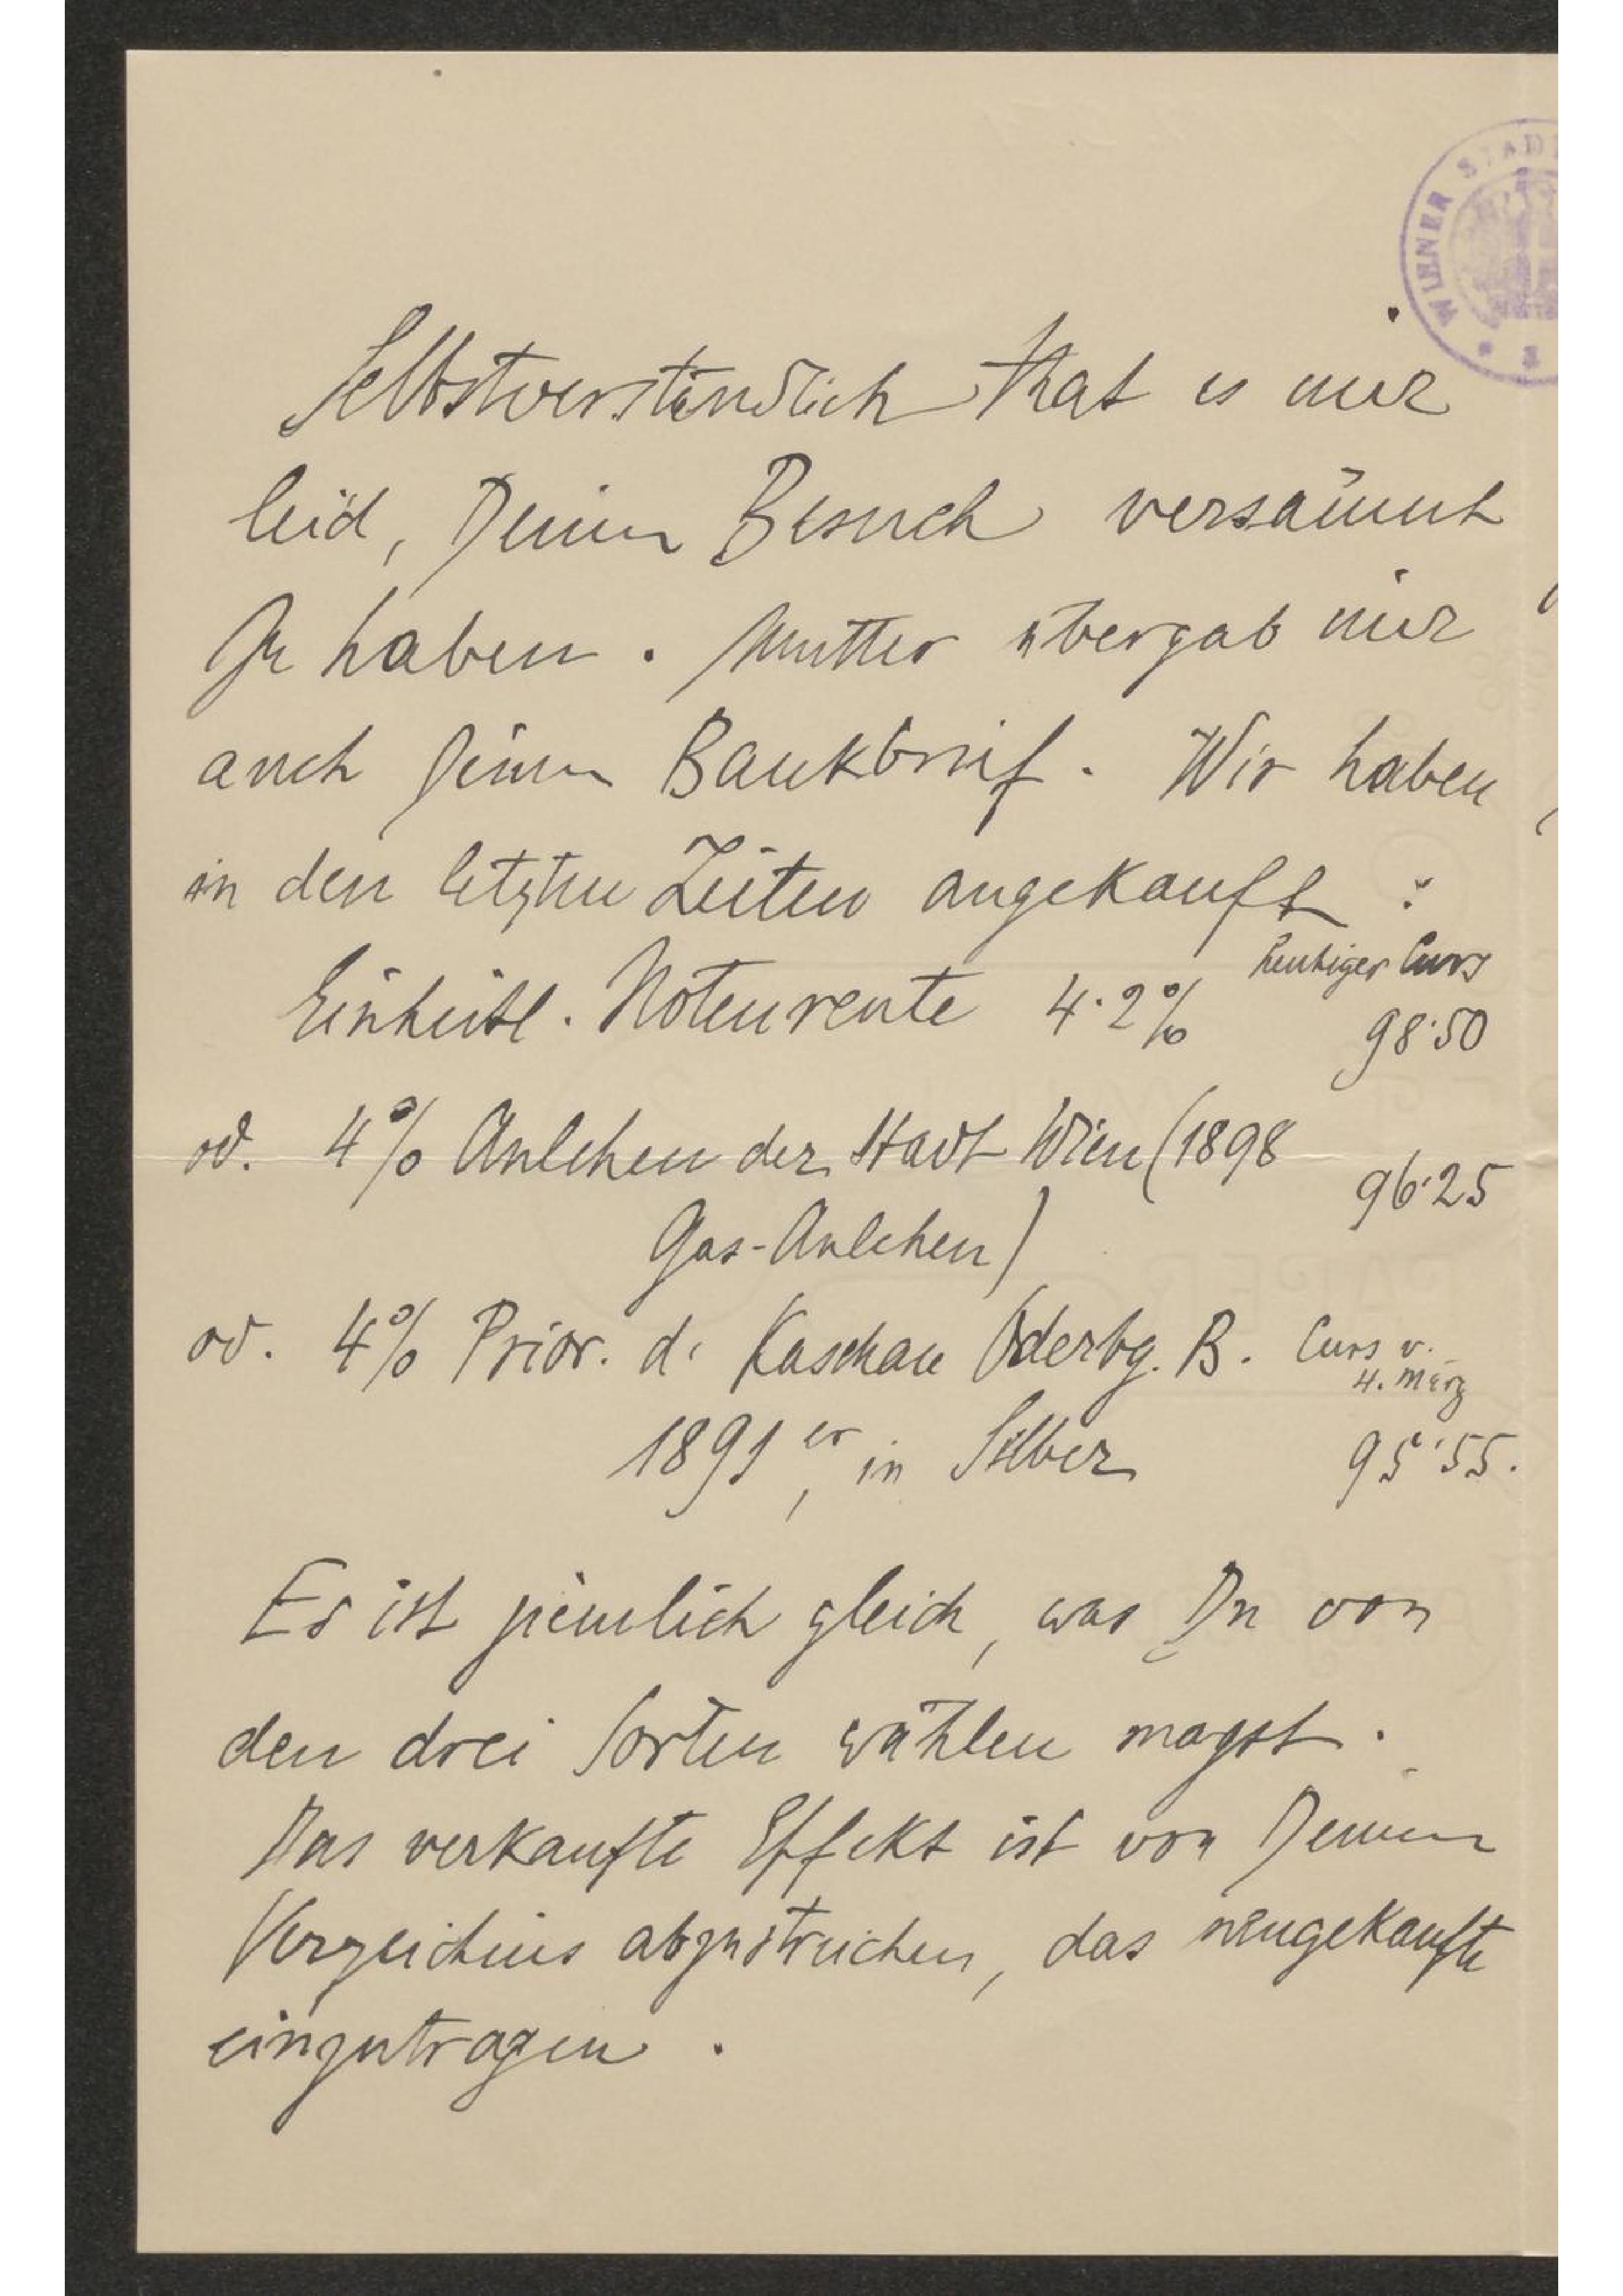 WIENER STAD
Selbstverständlich that es mir
leid, Deinen Besuch versäumt
zu haben. Mutter übergab mir
auch Deinen Bankbrief. Wir haben
in den letzten Zeiten angekauft:
heutiger Curs
Einheitl. Notenrente 4·2% 98·50
od. 4% Anlehen der Stadt Wien (1898 96·25
Gas-Anlehen)
od. 4% Prior. d. Kaschau Oderbg. B. Curs v.
4. März
1891er, in Silber 95·55.
Es ist ziemlich gleich, was Du von
den drei Sorten wählen magst.
Das verkaufte Effekt ist von Deinem
Verzeichnis abzustreichen, das neugekaufte
einzutragen.